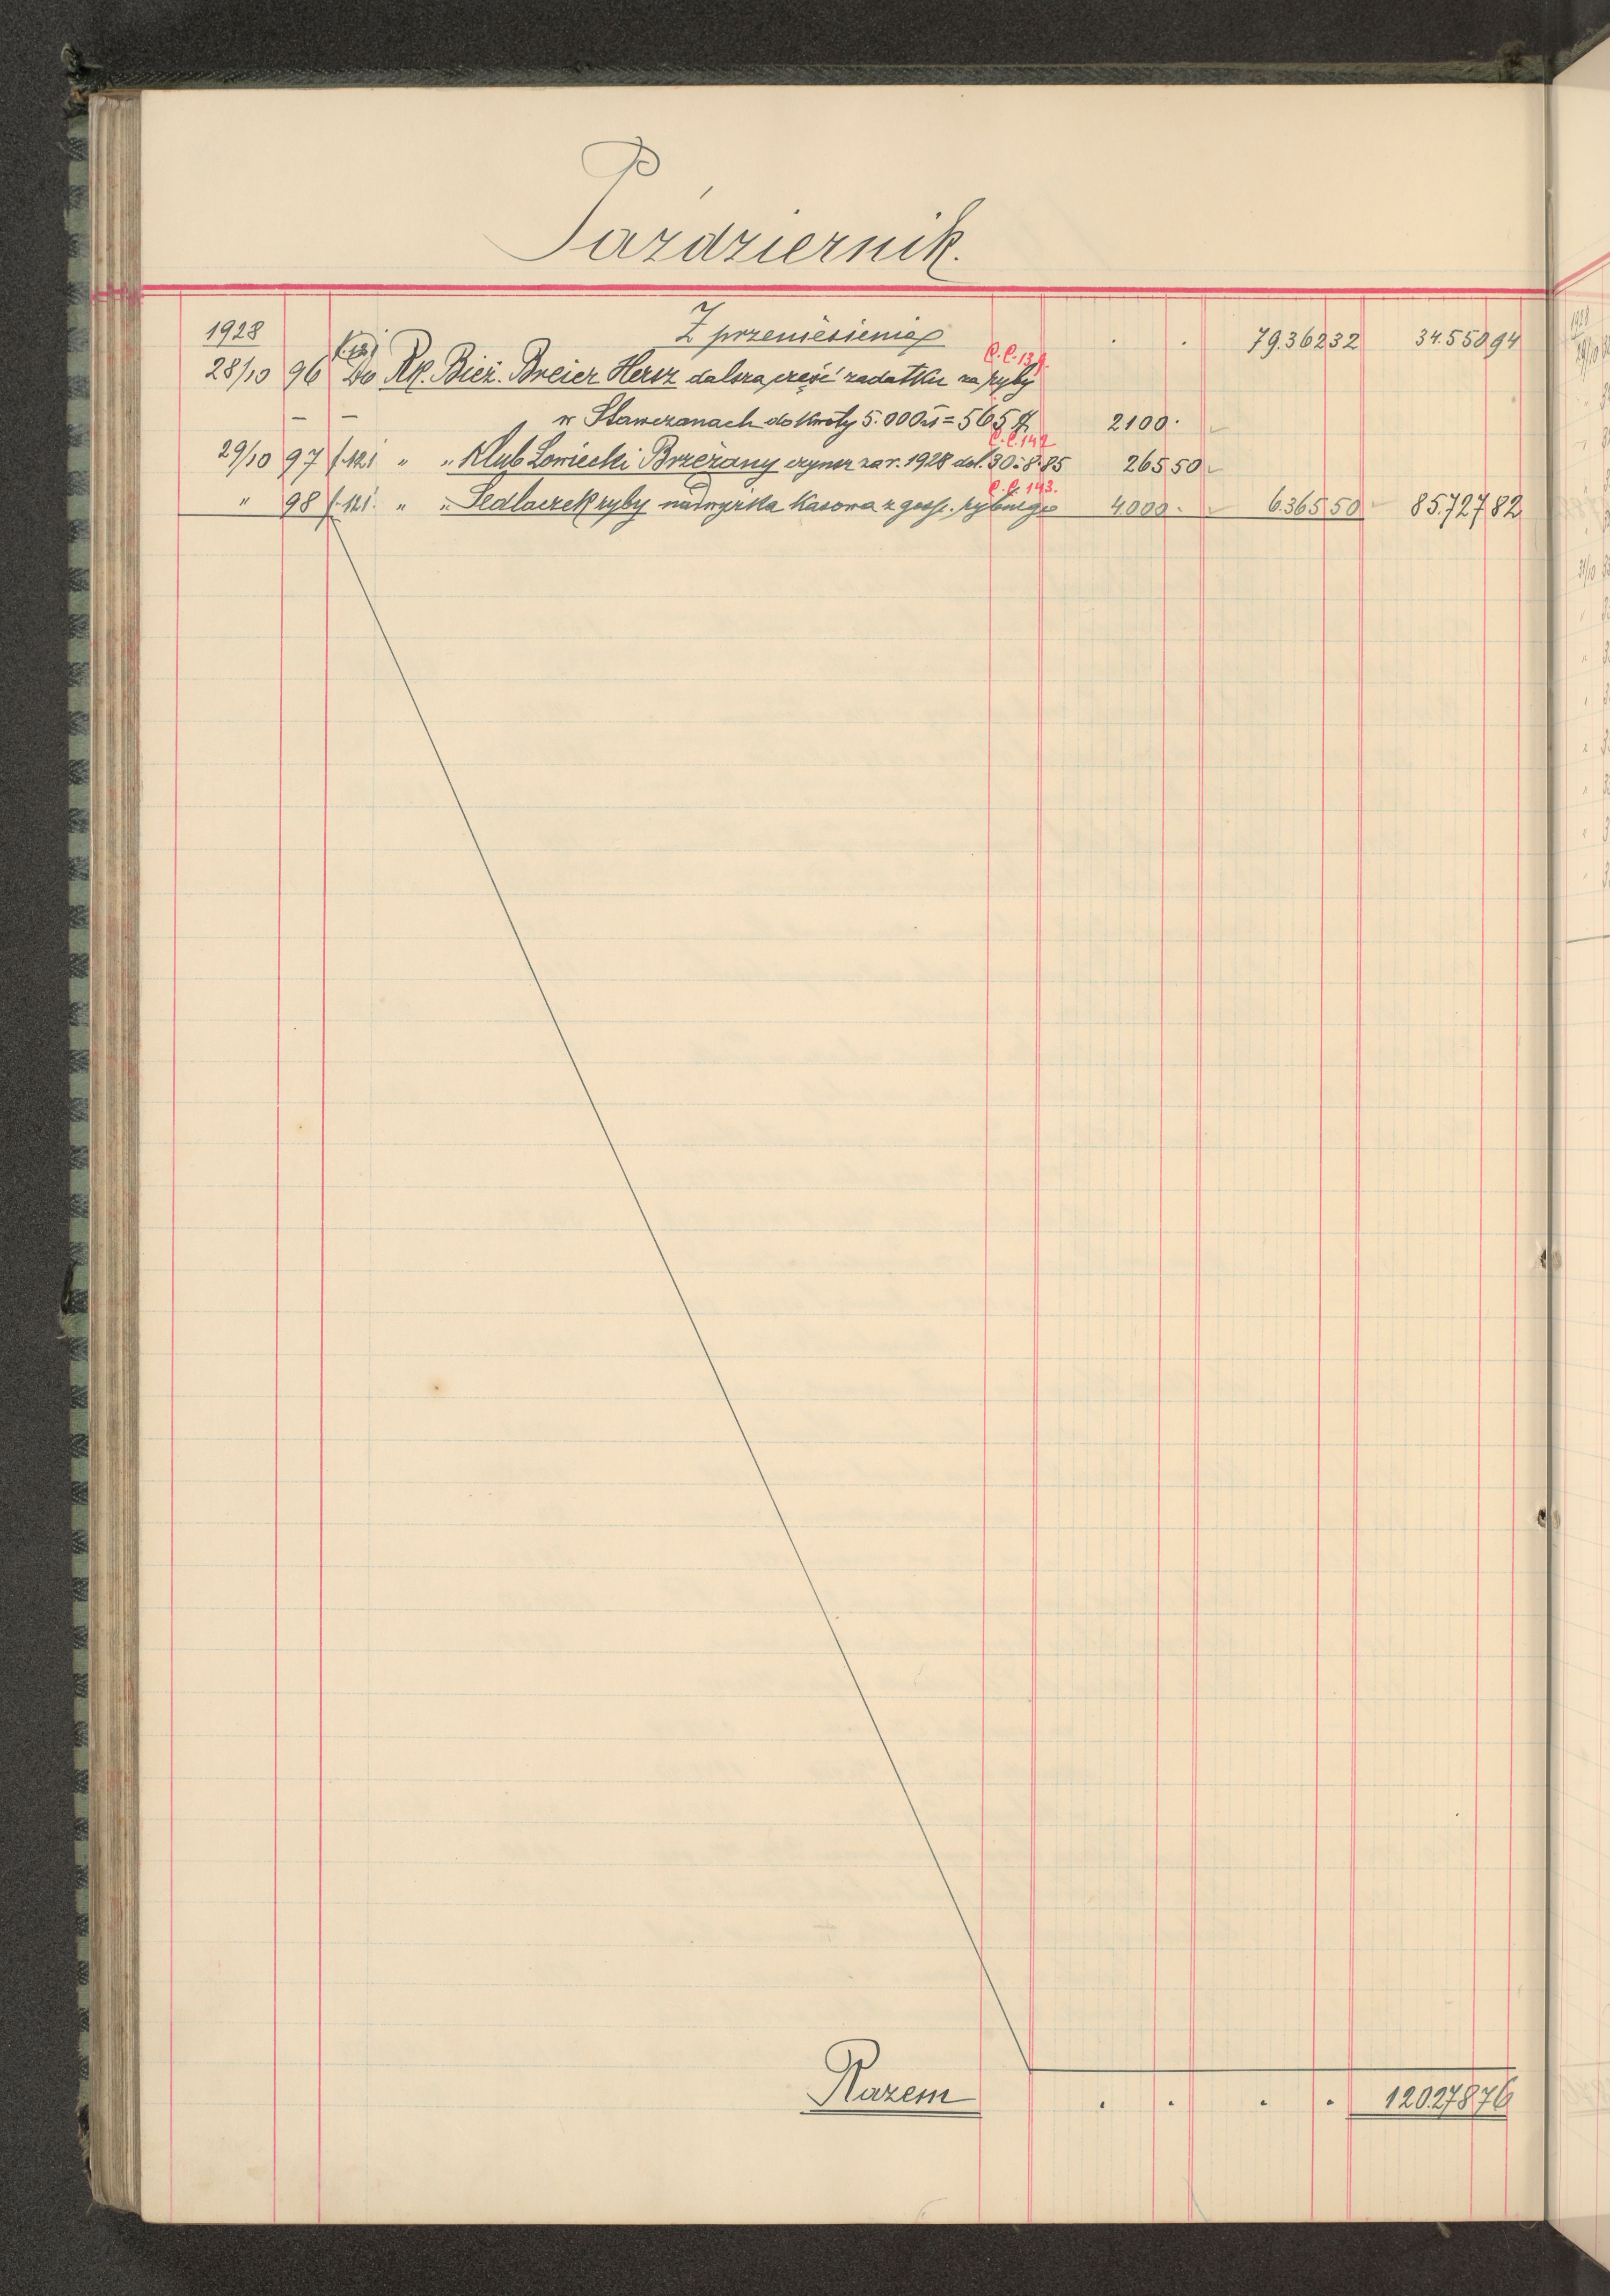 Październik.
1928 Z przeniesienia . . 79.362 32 34.550 94
C.C. 139.
28/10 96 Do Rk. Bież. Breier Hersz dalsza część zadatku za ryby
— — w Stawczanach do kwoty 5.000 zł = 565 # 2100 .
C.C. 142
29/10 97 f. 121 " " Klub Łowiecki Brzeżany czynsz za r. 1928 dol. 30 : 8.85 265 50
C.C. 143.
" 98 f. 121. " " Sedlaczek ryby nadwyżka kasowa z gosp. rybnego 4.000 . 6.365 50 85.727 82
Razem . . . . 120.278 76